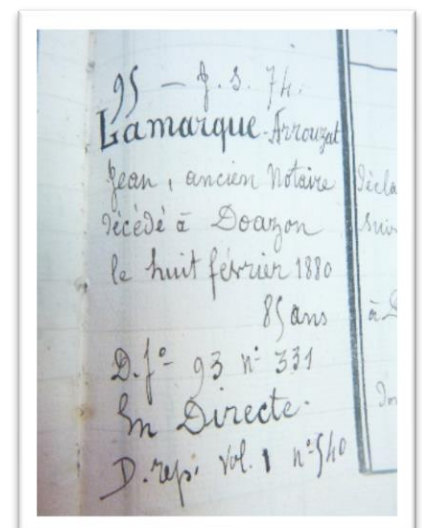 95 — J. S. 74.
Lamarque-Arrouzat
Jean, ancien Notaire
décédé à Doazon
le huit février 1880
85 ans
D. f° 93 n° 331
En Directe.
D. rep. Vol. 1 n° 540
décla
suiv
à D